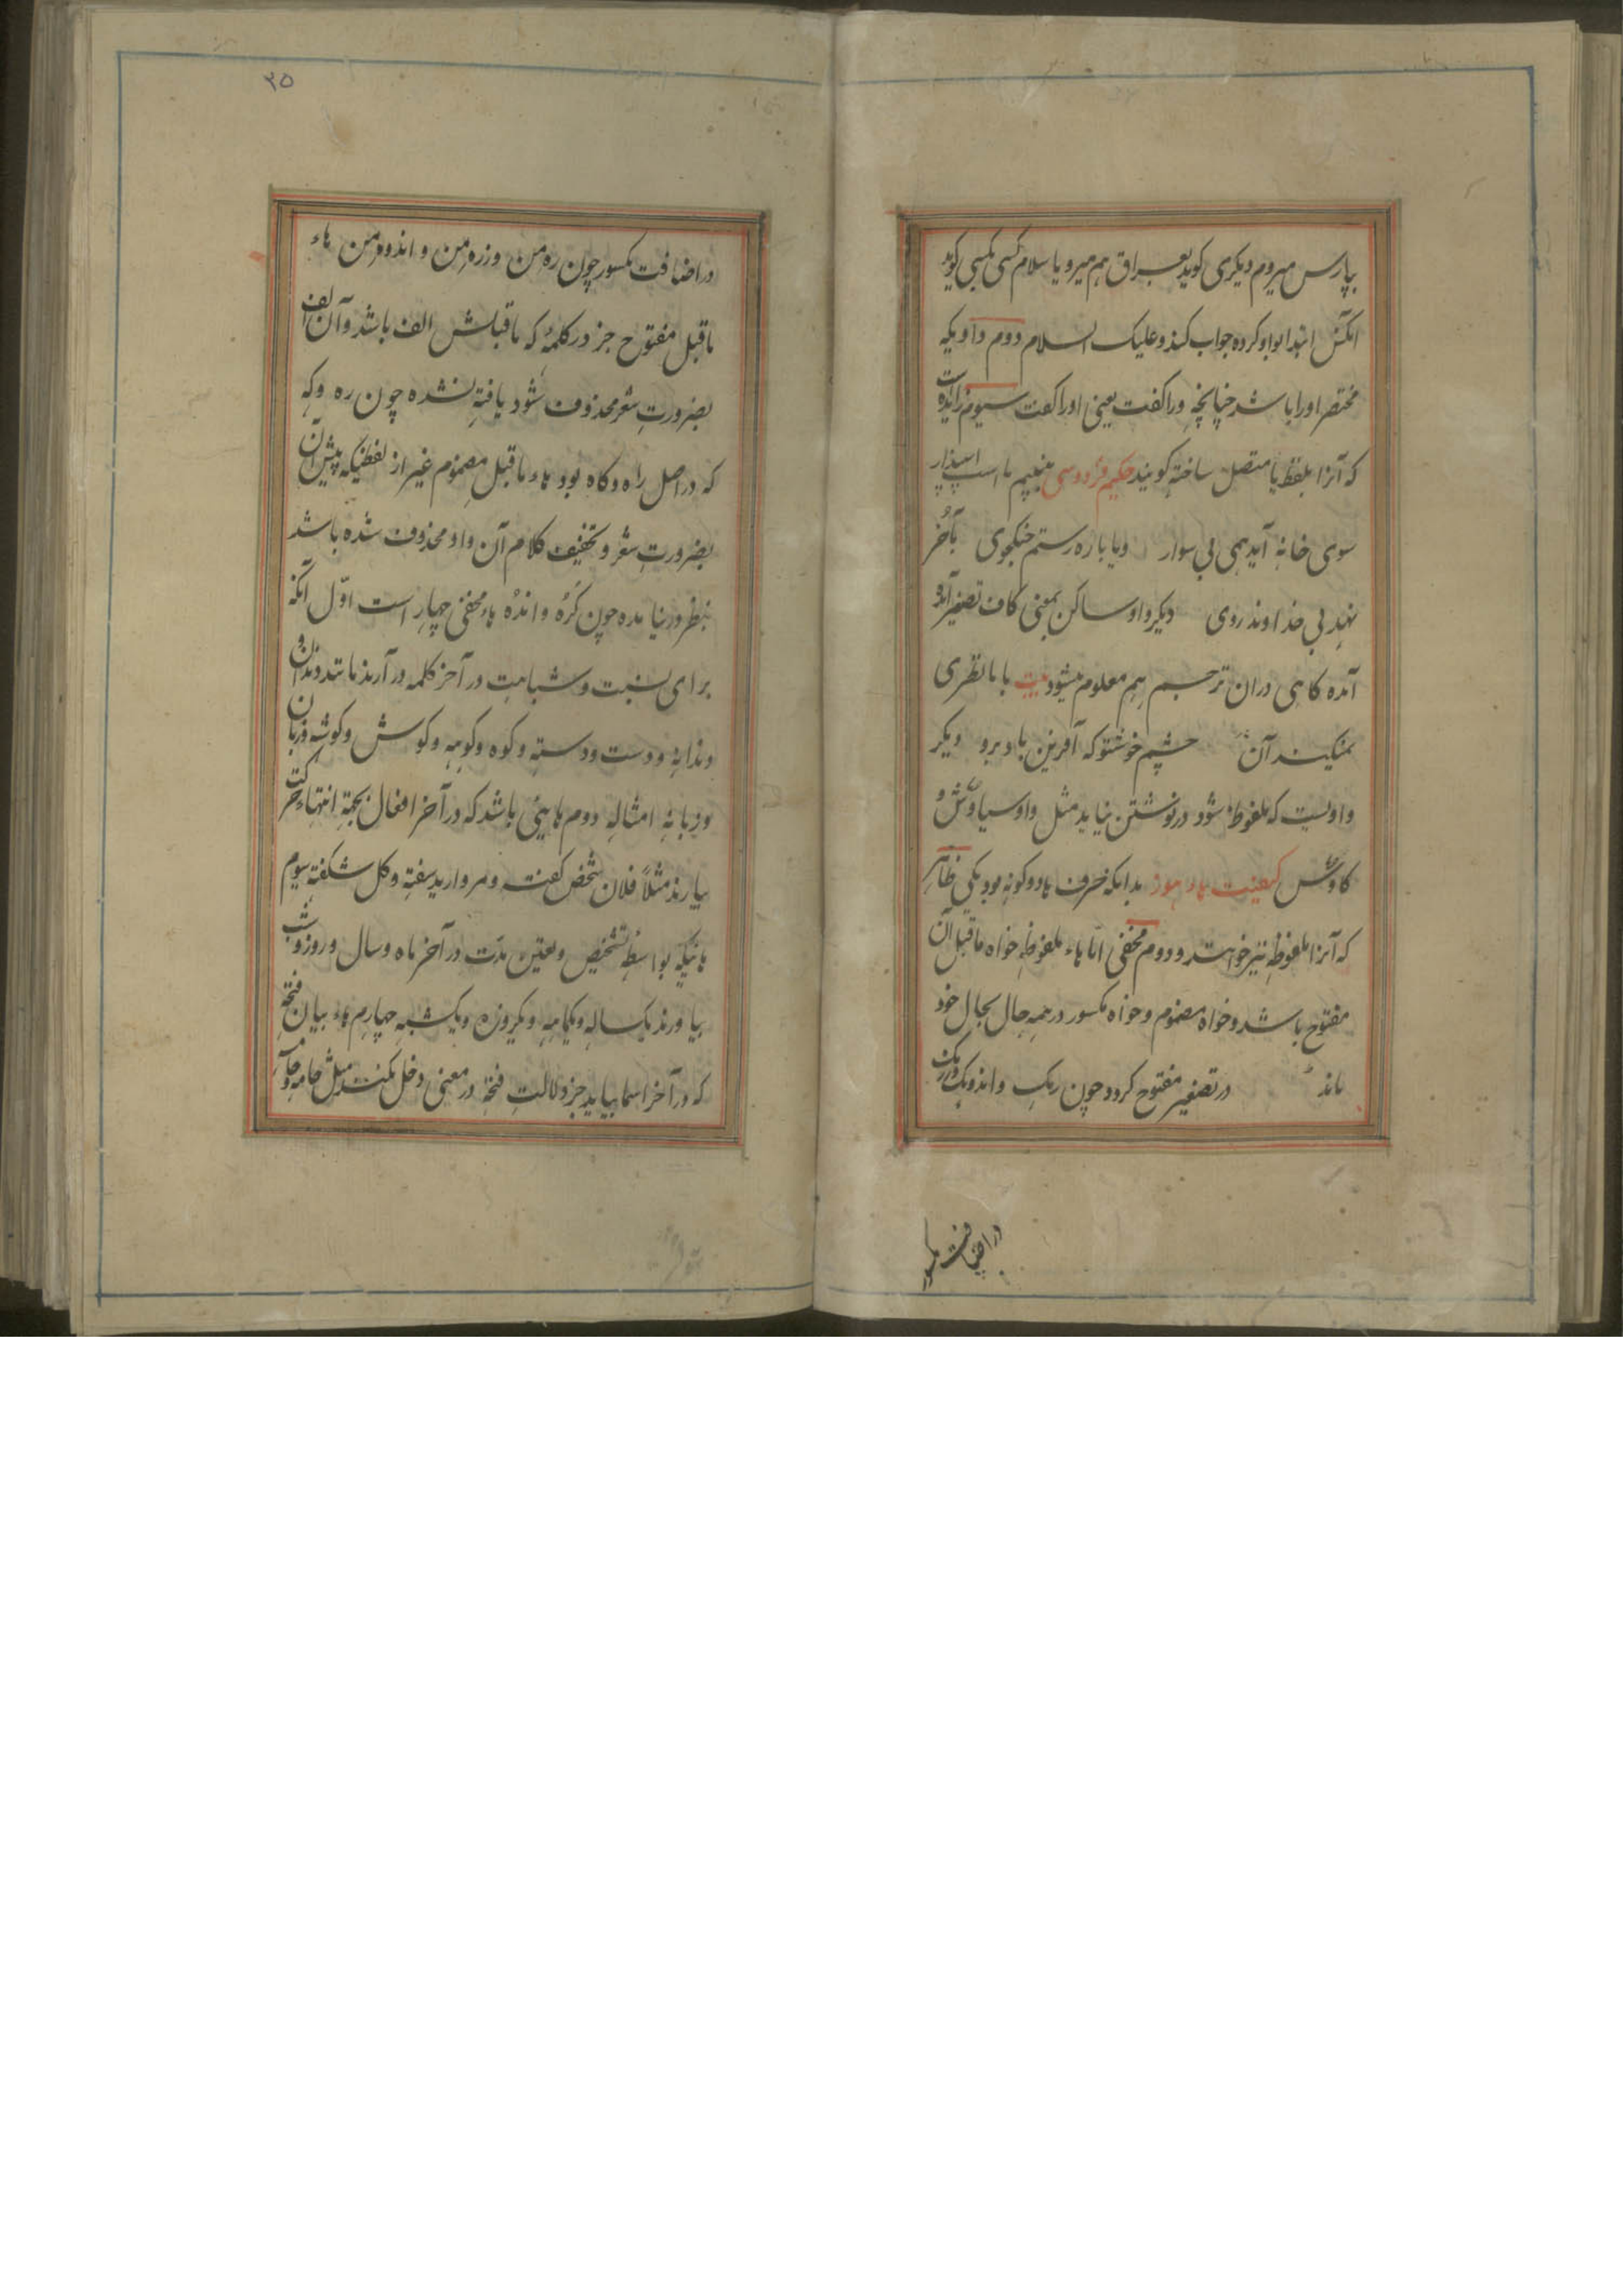 بپارس میروم دیکری کوید بعراق هم میرو یا سلام کسی بکسی کوید
انکس ابتدا بواو کرده جواب کند وعلیک السلام دوم واویکه
مختصر او را باشد چنانچه ورا کفت یعنی اورا کفت سیوم زائده است
که آنرا بلفظ یا متصل ساخته کویند حکیم فردوسی ببینیم تا اسپ اسپندیار
سوی خانه آید همی بی سوار ویا باره رستم جنکجوی بآخر
نهد بی خداوند روی دیکر واو ساکن بمعنی کاف تصغیر آمده
آمده کاهی دران ترحم هم معلوم میشود بیت با ما نظری
نمیکند آن چشم خوشتو که آفرین باد برو دیکر
واویست که ملفوظ شود در نوشتن نیاید مثل واو سیاوش و
کاوس کیفیت هاء هوز بدانکه حرف ها دو کونه بود یکی ظاهر
که آنرا ملفوظ نیز خوانند و دوم مخفی امّا هاء ملفوظه خواه ماقبل آن
مفتوح باشد و خواه مضموم و خواه مکسور در همه حال بحال خود
ماند در تصغیر مفتوح کردد چون رهک و اندوهک و زرهک
در اضافت مکسور
۳۵
در اضافت مکسور چون ره من و زره من و اندوه من هاء
ماقبل مفتوح جز در کلمهٔ که ماقبلش الف باشد و آن الف
بضرورت شعر محذوف شود یافته نشده چون ره و که
که در اصل راه و کاه بود هاء ماقبل مضموم غیر از لفظیکه پیش ازان
بضرورت شعر و تخفیف کلام آن واو محذوف شده باشد
بنظر در نیامده چون کُره و اندُه هاء مخفی چهار است اوّل آنکه
برای نسبت و شباهت در آخر کلمه در آرند مانند دندان و
دندانه و دست و دسته و کوه و کوهه و کوش و کوشه و زبان
و زبانه امثاله دوم هایی باشد که در آخر افعال بجهة انتهاء حرکت
بیارند مثلاً فلان شخص کفته و مروارید سفته و کل شکفته سیوم
هائیکه بواسطهٔ تشخیص و تعیّن مدّت در آخر ماه و سال و روز و شب
بیاورند یکساله و یکماهه و یکروزه و یکشبه چهارم هاء بیان فتحه
که در آخر اسما بیاید جز دلالت فتحه در معنی دخل نکند مثل جامه و خامه